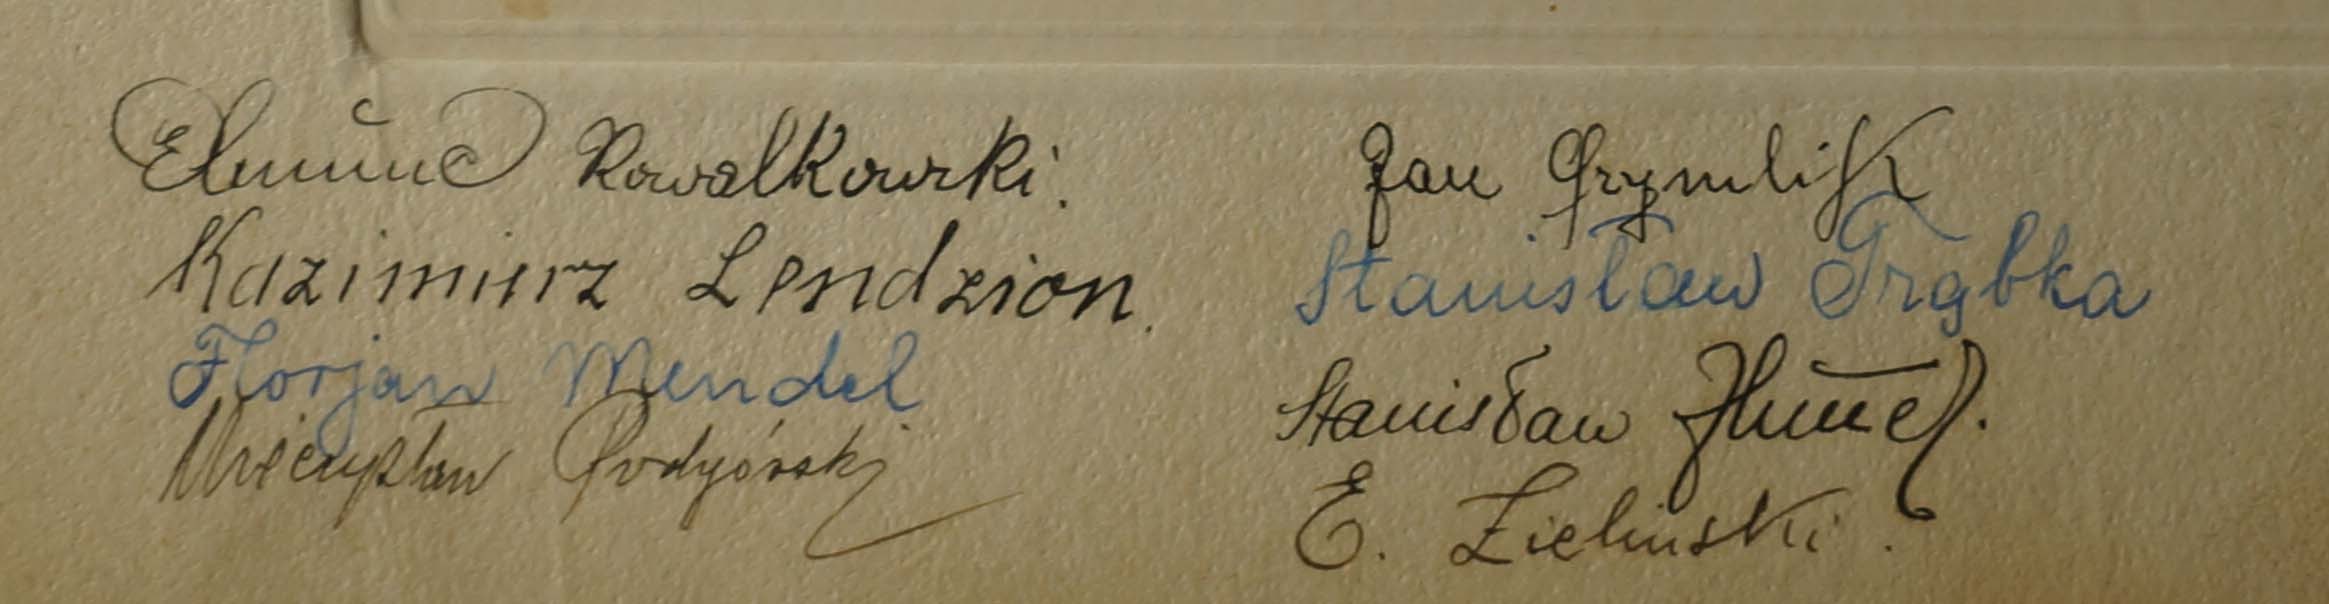 Edmund Kowalkowski.
Kazimierz Lendzion.
Florjan Mendel
Mieczysław Podgórski
Jan
Stanisław Trąbka
Stanisław
E. Zieliński.